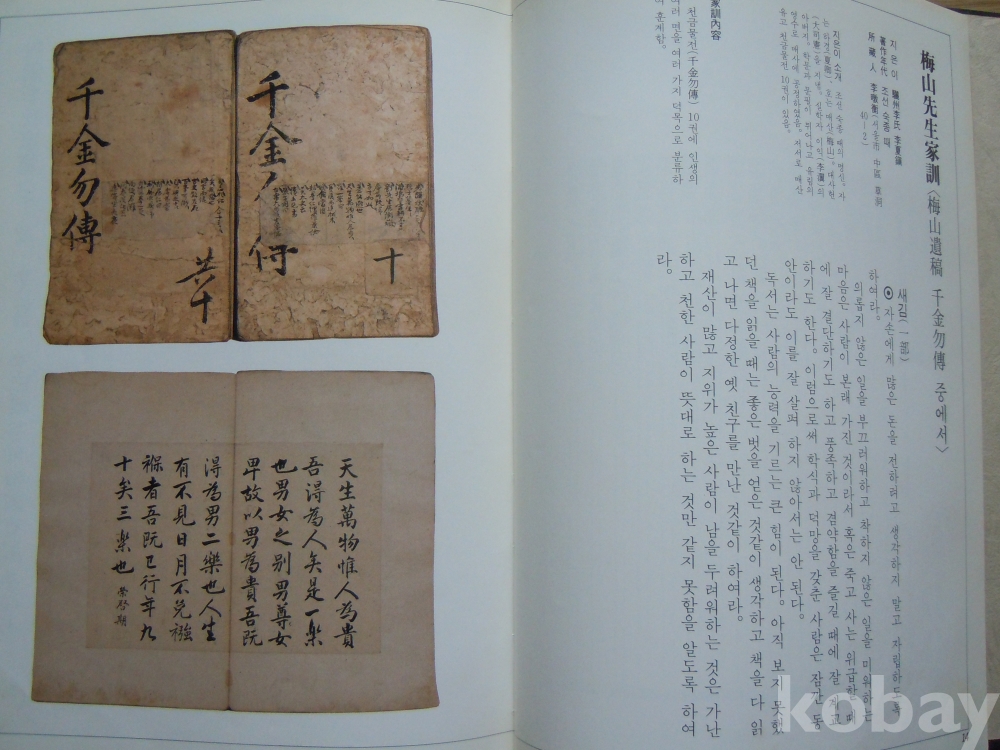 梅山先生家訓〈梅山遺稿 千金勿傳 중에서〉
지은이 驪州李氏 李夏鎭
著作年代 조선 숙종 때
所藏人 李暾衡(서울市 中區 草洞
40-2)
지은이 소개 조선 숙종 때의 명신. 자
는 하경(夏卿), 호는 매산(梅山). 대사헌
(大司憲)을 지냄. 실학자 이익(李瀷)의
아버지. 학문과 문필이 뛰어나고
10권이 있음.
家訓內容
천금물전(千金勿傳) 10권에 인생의
여러 면을 여러 가지 덕목으로 분류하
여 훈계함.
새김(一部)
⊙ 자손에게 많은 돈을 전하려고 생각하지 말고 자립하도록
하여라.
의롭지 않은 일을 부끄러워하고 착하지 않은 일을 미워하는
마음은 사람이 본래 가진 것이라서 혹은 죽고 사는 위급한 때
에 잘 결단하기도 하고 풍족하고 겸약함을 즐길 때에 잘 지고
하기도 한다. 이럼으로써 학식과 덕망을 갖춘 사람은 잠간 동
안이라도 이를 잘 살펴 하지 않아서는 안 된다.
독서는 사람의 능력을 기르는 큰 힘이 된다. 아직 보지 못했
던 책을 읽을 때는 좋은 벗을 얻은 것같이 생각하고 책을 다 읽
고 나면 다정한 옛 친구를 만난 것같이 하여라.
재산이 많고 지위가 높은 사람이 남을 두려워하는 것은 가난
하고 천한 사람이 뜻대로 하는 것만 같지 못함을 알도록 하여
라.
千金勿傳
十
千金勿傳
共十
天生萬物惟人為貴
吾得為人矣是一樂
也男女之別男尊女
卑故以男為貴吾既
得為男二樂也人生
有不見日月不免襁
褓者吾既已行年九
十矣三樂也 榮啓期
kobay